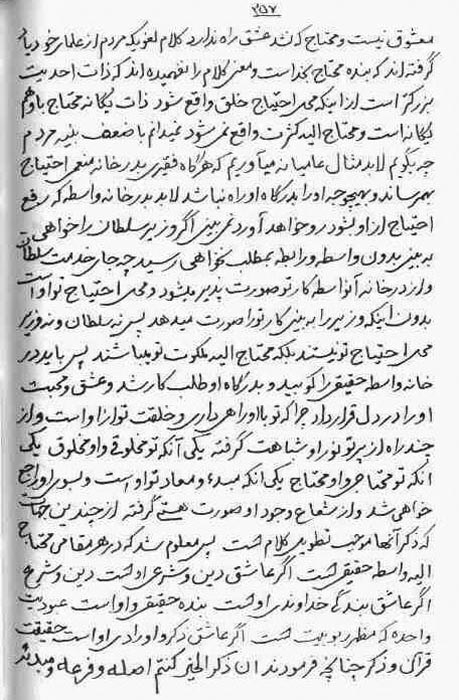 ۳۵۷
معشوق نیست و محتاج که شد عشق راه ندارد کلام لغویکه مردم از علمای خود یاد
گرفته‌اند که بنده محتاج بخداست و معنی کلام را نفهمیده‌اند که ذات احدیت
بزرگتر است از اینکه محل احتیاج خلق واقع شود ذات یگانه محتاج باو هم
یگانه است و محتاج الیه کثرت واقع نمی‌شود نمیدانم با ضعف بنیه مردم
چه بگویم لابد مثال عامیانه میآوریم که هرگاه فقیری بدرخانه منعمی احتیاج
بهمرساند و بهیچوجه او را بدرگاه او راه نباشد لابد بدرخانه واسطه که رفع
احتیاج از او بشود رو خواهد آورد نمی بینی اگر وزیر سلطان را خواهی
به بینی بدون واسطه و رابطه بمطلب نخواهی رسید چه جای خدمت سلطان
و از درخانه آنواسطه کار تو صورت پذیر میشود و محل احتیاج تو او است
بدون اینکه وزیر را به بینی کار تو را صورت میدهد پس نه سلطان و نه وزیر
محل احتیاج تو نیستند بلکه محتاج الیه ملکوت تو میباشند پس باید در
خانه واسطه حقیقی را کوبید و بدرگاه او طلب کار شد و عشق و محبت
او را در دل قرار داد چرا که تو با او راهی داری و خلقت تو از او است و از
چند راه از پرتو نور او شباهت گرفته یکی آنکه تو مخلوقی و او مخلوق یکی
آنکه تو محتاجی و او محتاج یکی آنکه مبدء و معاد تو او است و بسوی او راجع
خواهی شد و از شعاع وجود او صورت هستی گرفته از چندین جهات
که ذکر آنها موجب تطویل کلام است پس معلوم شد که در هر مقامی محتاج
الیه واسطه حقیقی است اگر عاشق دین و شرعی او است دین و شرع
اگر عاشق بندگی خداوندی او است بنده حقیقی و او است عبودیت
واحده که مظهر ربوبیت است اگر عاشق ذکر و اورادی او است حقیقت
قرآن و ذکر چنانچه فرمودند ان ذکر الخیر کنتم اصله و فرعه و مبدئه